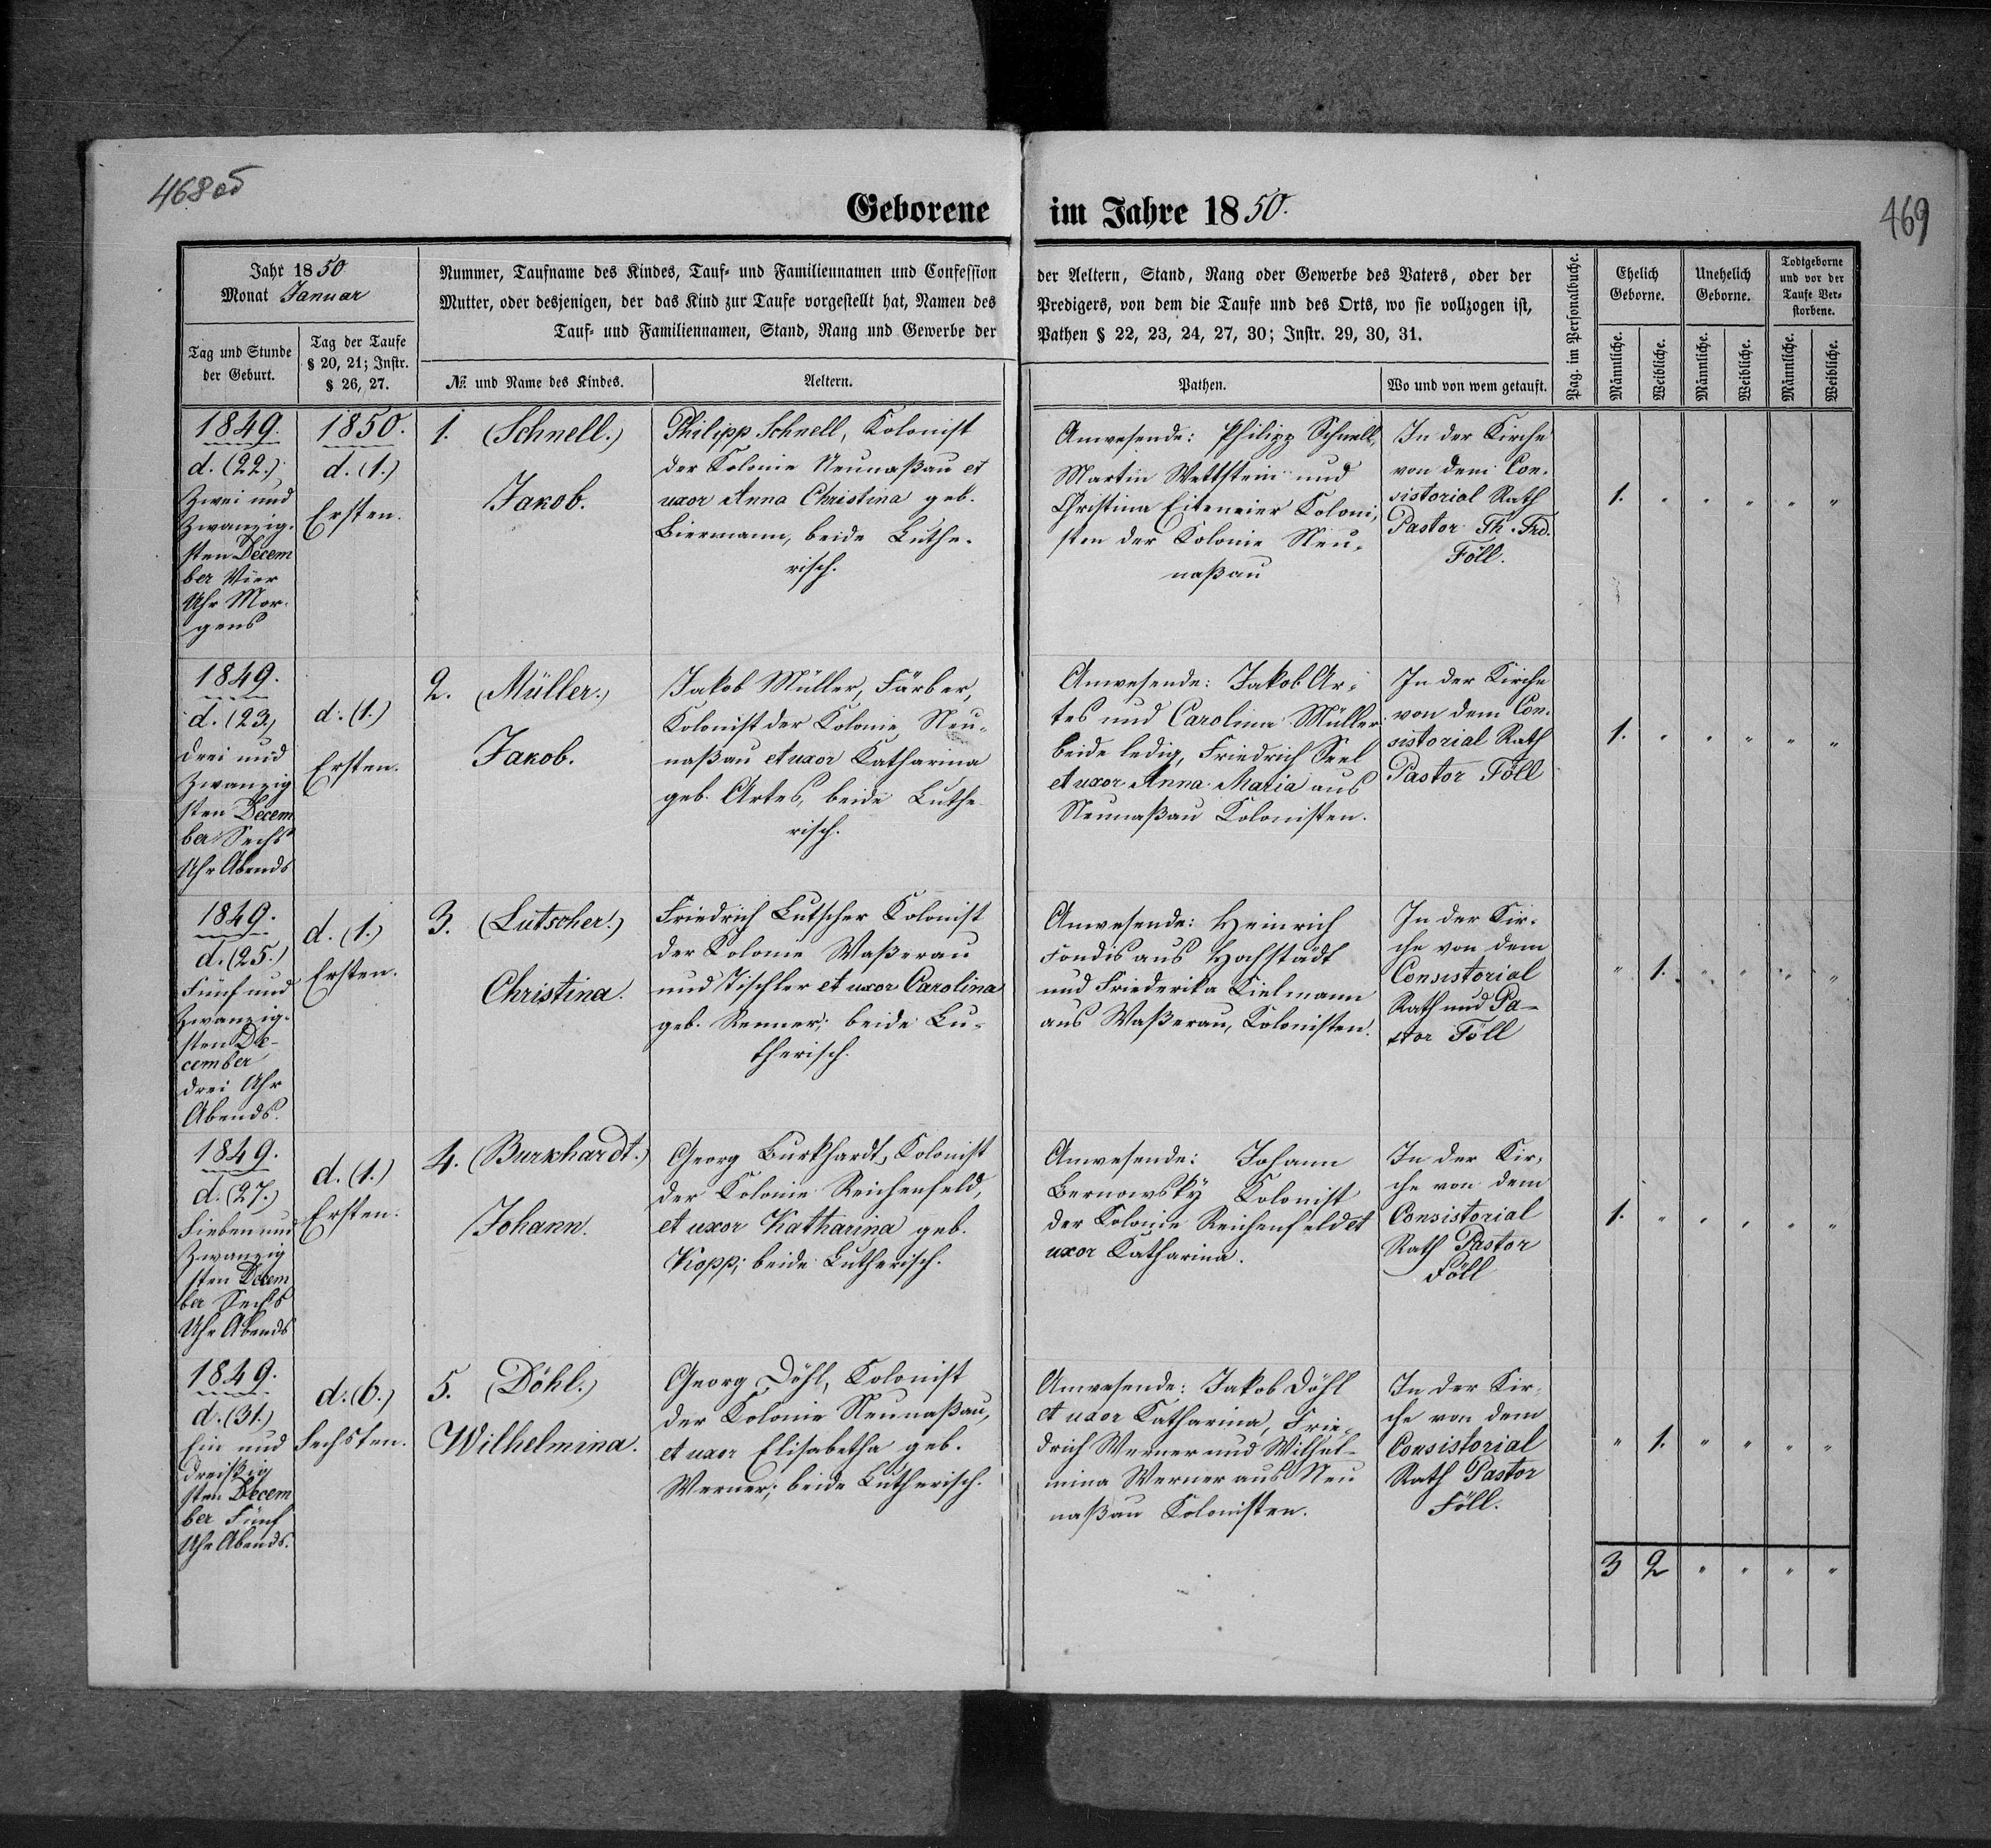 468об
469
Geborene im Jahre 1850.
Jahr 1850
Monat Januar
Tag und Stunde
der Geburt.
Tag der Taufe
§ 20, 21; Instr.
§ 26, 27.
Nummer, Taufname des Kindes, Tauf- und Familiennamen und Confession
Mutter, oder desjenigen, der das Kind zur Taufe vorgestellt hat, Namen des
Tauf- und Familiennamen, Stand, Rang und Gewerbe der
№ und Name des Kindes.
Aeltern.
der Aeltern, Stand, Rang oder Gewerbe des Vaters, oder der
Predigers, von dem die Taufe und des Orts, wo sie vollzogen ist,
Pathen § 22, 23, 24, 27, 30; Instr. 29, 30, 31.
Pathen.
Wo und von wem getauft.
Pag. im Personalbuche.
Ehelich
Geborne.
Unehelich
Geborne.
Todtgeborne
und vor der
Taufe Ver-
storbene.
Männliche.
Weibliche.
Männliche.
Weibliche.
Männliche.
Weibliche.
1849.
d. (22.)
Zwei und
Zwanzig-
sten Decem
ber Vier
Uhr Mor-
gens
1850.
d. (1.)
Ersten.
1. (Schnell.)
Jakob.
Philipp Schnell, Kolonist
der Kolonie Neunaßau et
uxor Anna Christina geb.
Biermann, beide Luthe-
risch.
Anwesende: Philipp Schnell,
Martin Wettstein und
Christina Eiteneier Koloni-
sten der Kolonie Neu-
naßau
In der Kirche
von dem Con-
sistorial Rath
Pastor Th. Frd.
Föll.
1. " " " " "
1849.
d. (23.)
drei und
Zwanzig
sten Decem
ber Sechs
Uhr Abends
d. (1.)
Ersten.
2. (Müller.)
Jakob.
Jakob Müller, Färber,
Kolonist der Kolonie Neu-
naßau et uxor Katharina
geb. Artes, beide Luthe-
risch.
Anwesende: Jakob Ar-
tes und Carolina Müller
beide ledig, Friedrich Seel
et uxor Anna Maria aus
Neunaßau Kolonisten.
In der Kirche
von dem Con-
sistorial Rath
Pastor Föll
1. " " " " "
1849.
d. (25.)
Fünf und
Zwanzig-
sten De-
cember
drei Uhr
Abends.
d. (1.)
Ersten.
3. (Lutscher.)
Christina.
Friedrich Lutscher Kolonist
der Kolonie Waßerau
und Tischler et uxor Carolina
geb. Renner; beide Lu-
therisch.
Anwesende: Heinrich
Fondis aus Hochstädt
und Friederika Kielmann
aus Waßerau, Kolonisten.
In der Kir-
che von dem
Consistorial
Rath und Pa-
stor Föll
" 1. " " " "
1849.
d. (27.)
Sieben und
Zwanzig
sten Decem
ber Sechs
Uhr Abends
d. (1.)
Ersten.
4. (Burkhardt.)
Johann.
Georg Burkhardt, Kolonist
der Kolonie Reichenfeld,
et uxor Katharina geb.
Kopp; beide Lutherisch.
Anwesende: Johann
Bernowsky Kolonist
der Kolonie Reichenfeld et
uxor Katharina.
In der Kir-
che von dem
Consistorial
Rath Pastor
Föll
1. " " " " "
1849.
d. (31.)
Ein und
dreißig
sten Decem
ber Fünf
Uhr Abends.
d. (6.)
Sechsten.
5. (Döhl.)
Wilhelmina.
Georg Döhl, Kolonist
der Kolonie Neunaßau,
et uxor Elisabetha geb.
Werner; beide Lutherisch.
Anwesende: Jakob Döhl
et uxor Katharina, Frie-
drich Werner und Wilhel-
mina Werner aus Neu
naßau Kolonisten.
In der Kir-
che von dem
Consistorial
Rath Pastor
Föll.
" 1. " " " "
3 2 " " " "